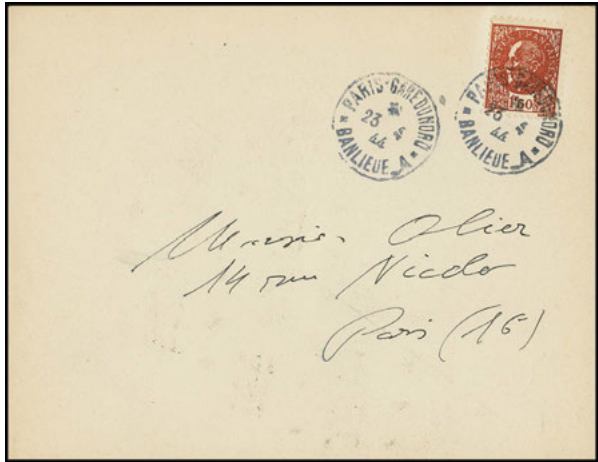 PARIS-GARE DU NORD
* 23
44
* BANLIEUE_A *
PA
NORD
23
44
BANLIEUE_A *
1F50
Monsieur Olier
14 rue Nicolo
Paris (16)